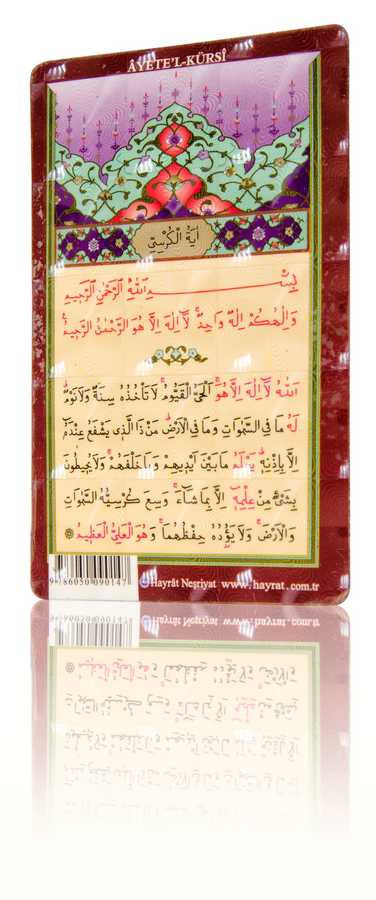 ÂYETE'L-KÜRSÎ
اٰيَةُ الْكُرْسِيِّ
بِسْمِ اللّٰهِ الرَّحْمٰنِ الرَّحِيمِ
وَاِلٰهُكُمْ اِلٰهٌ وَاحِدٌ لَٓا اِلٰهَ اِلَّا هُوَ الرَّحْمٰنُ الرَّحِيمُ
اَللّٰهُ لَٓا اِلٰهَ اِلَّا هُوَ اَلْحَيُّ الْقَيُّومُ لَا تَأْخُذُهُ سِنَةٌ وَلَا نَوْمٌ
لَهُ مَا فِي السَّمٰوَاتِ وَمَا فِي الْاَرْضِ مَنْ ذَا الَّذِي يَشْفَعُ عِنْدَهُٓ
اِلَّا بِاِذْنِهِ يَعْلَمُ مَا بَيْنَ اَيْدِيهِمْ وَمَا خَلْفَهُمْ وَلَا يُحِيطُونَ
بِشَيْءٍ مِنْ عِلْمِهِٓ اِلَّا بِمَا شَٓاءَ وَسِعَ كُرْسِيُّهُ السَّمٰوَاتِ
وَالْاَرْضَ وَلَا يَؤُ۫دُهُ حِفْظُهُمَا وَهُوَ الْعَلِيُّ الْعَظِيمُ
9786050090147
Hayrât Neşriyat www.hayrat.com.tr